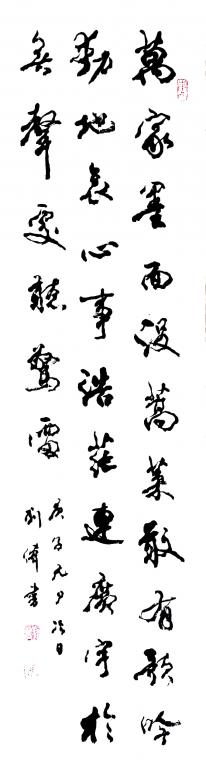 萬家墨面没蒿萊敢有歌吟
動地哀心事浩茫連廣宇於
無聲處聽驚雷
庚子元月日
劉偉書